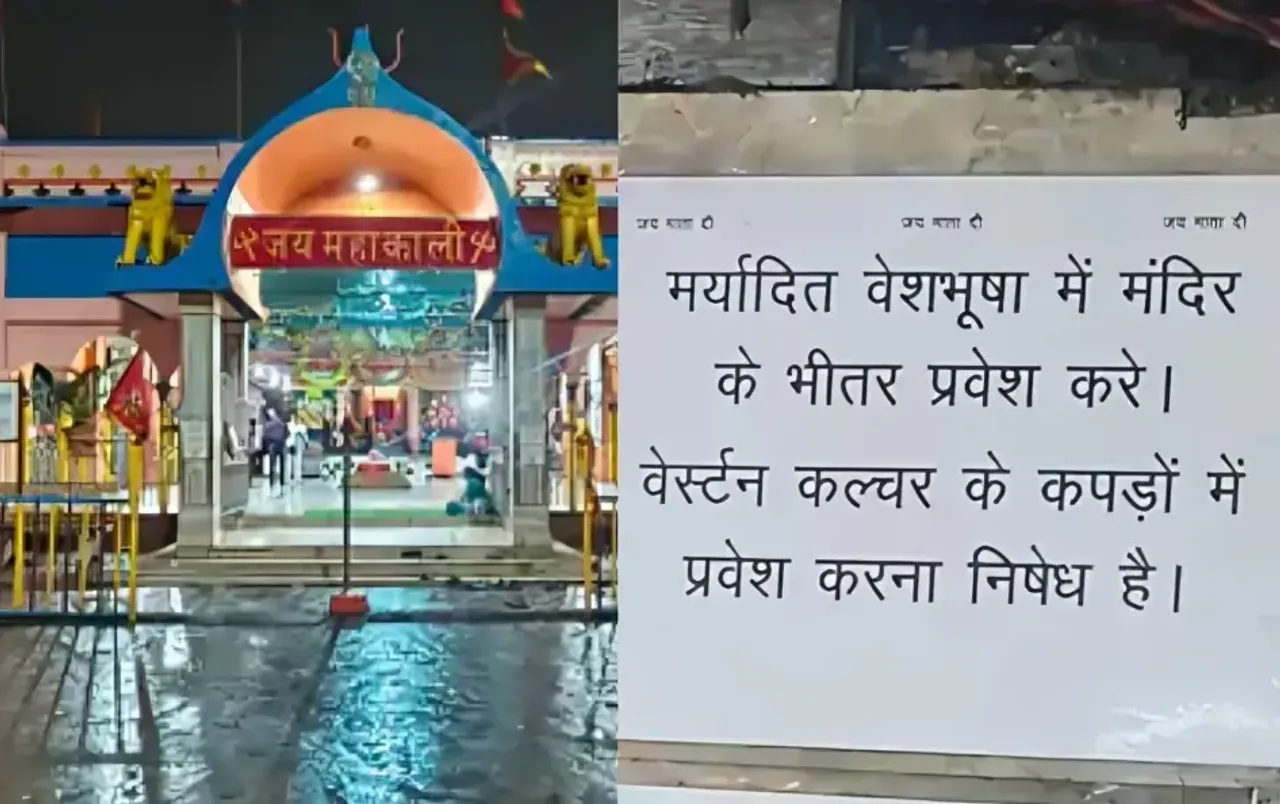 जय महाकाली
जय माता दी जय माता दी जय माता दी
मर्यादित वेशभूषा में मंदिर
के भीतर प्रवेश करे।
वेर्स्टन कल्चर के कपड़ों में
प्रवेश करना निषेध है।